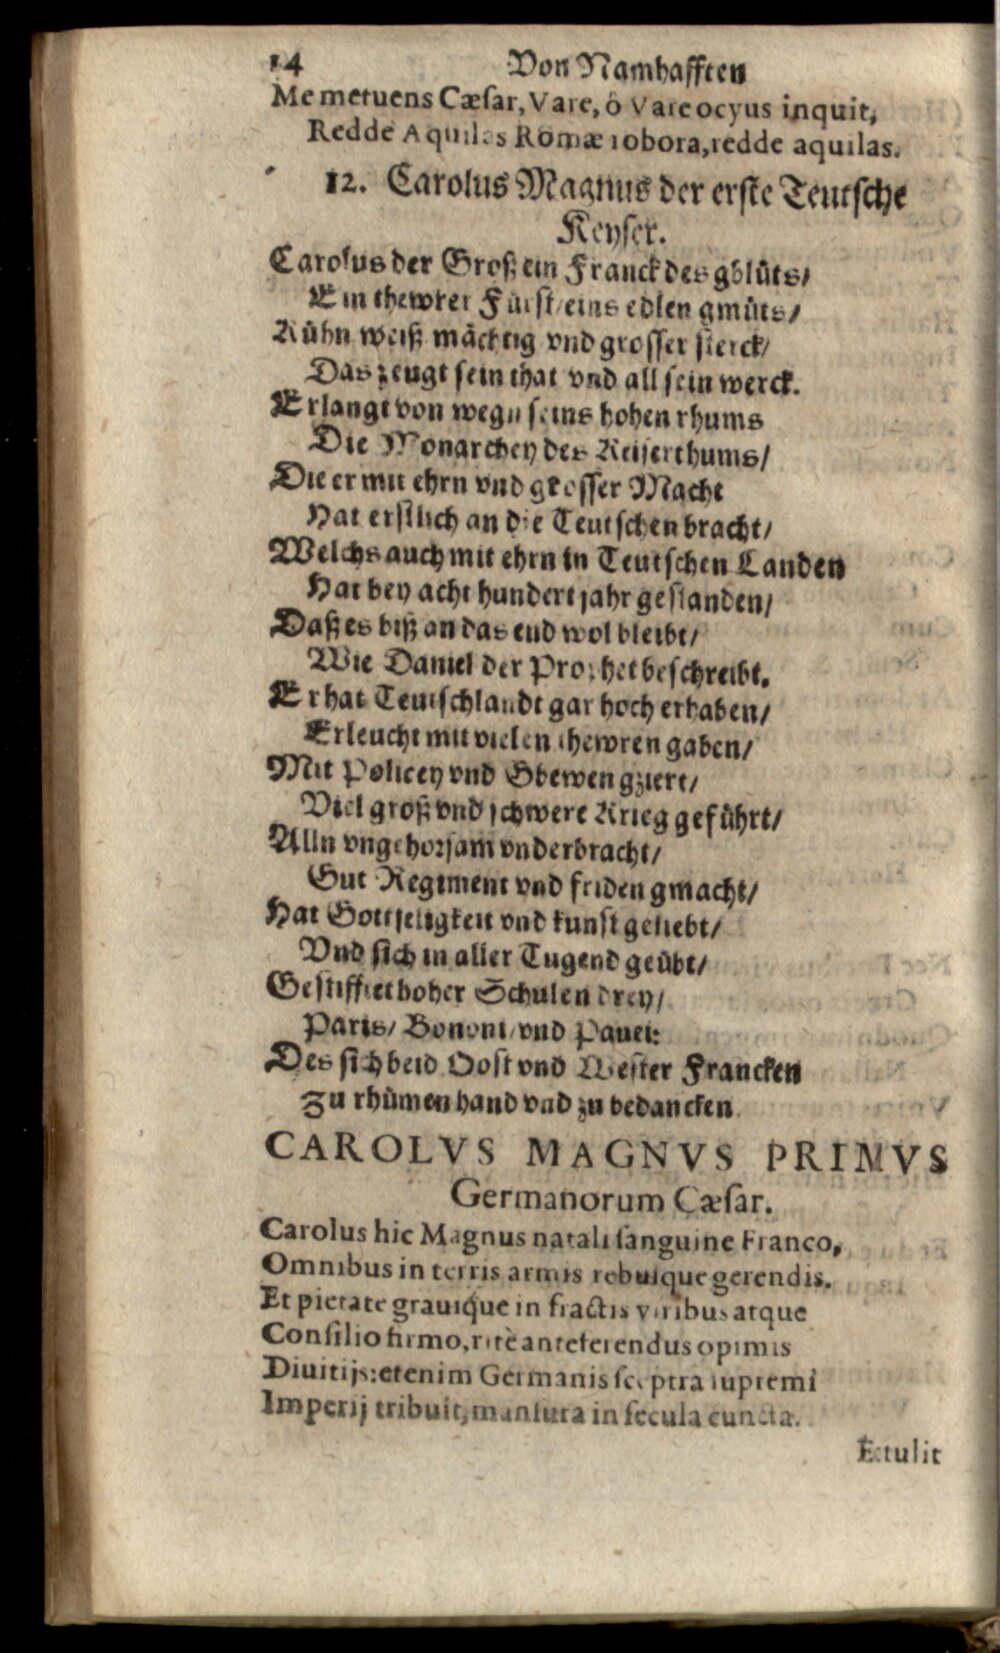 14 Von Namhafften
Me metuens Cæſar, Vare, ô Vare ocyus inquit,
Redde Aquilas Romæ robora, redde aquilas.
12. Carolus Magnus der erſte Teutſche
Keyſer.
Carolus der Groß ein Franck des gblüts/
Ein thewrer Fürſt/ eins edlen gmüts/
Kühn weiß mächtig vnd groſſer ſterck/
Das zeugt ſein that vnd all ſein werck.
Erlangt von wegn ſeins hohen rhums
Die Monarchey des Keiſerthums/
Die er mit ehrn vnd groſſer Macht
Hat erſtlich an die Teutſchen bracht/
Welchs auch mit ehrn in Teutſchen Landen
Hat bey acht hundert jahr geſtanden/
Daß es biß an das end wol bleibt/
Wie Daniel der Prophet beſchreibt.
Er hat Teutſchlandt gar hoch erhaben/
Erleucht mit vielen thewren gaben/
Mit Policey vnd Gbewen gziert/
Viel groß vnd ſchwere Krieg geführt/
Alln vngehorſam vnderbracht/
Gut Regiment vnd friden gmacht/
Hat Gottſeligkeit vnd kunſt geliebt/
Vnd ſich in aller Tugend geübt/
Geſtifftet hoher Schulen drey/
Paris/ Bononi/ vnd Pauei:
Des ſich beid Ooſt vnd Weſter Francken
Zu rhümen hand vnd zu bedancken.
CAROLVS MAGNVS PRIMVS
Germanorum Cæſar.
Carolus hic Magnus natali ſanguine Franco,
Omnibus in terris armis rebuſque gerendis.
Et pietate grauique in fractis viribus atque
Conſilio firmo, ritè anteferendus opimis
Diuitijs: etenim Germanis ſceptra ſupremi
Imperij tribuit, manſura in ſecula cuncta.
Extulit